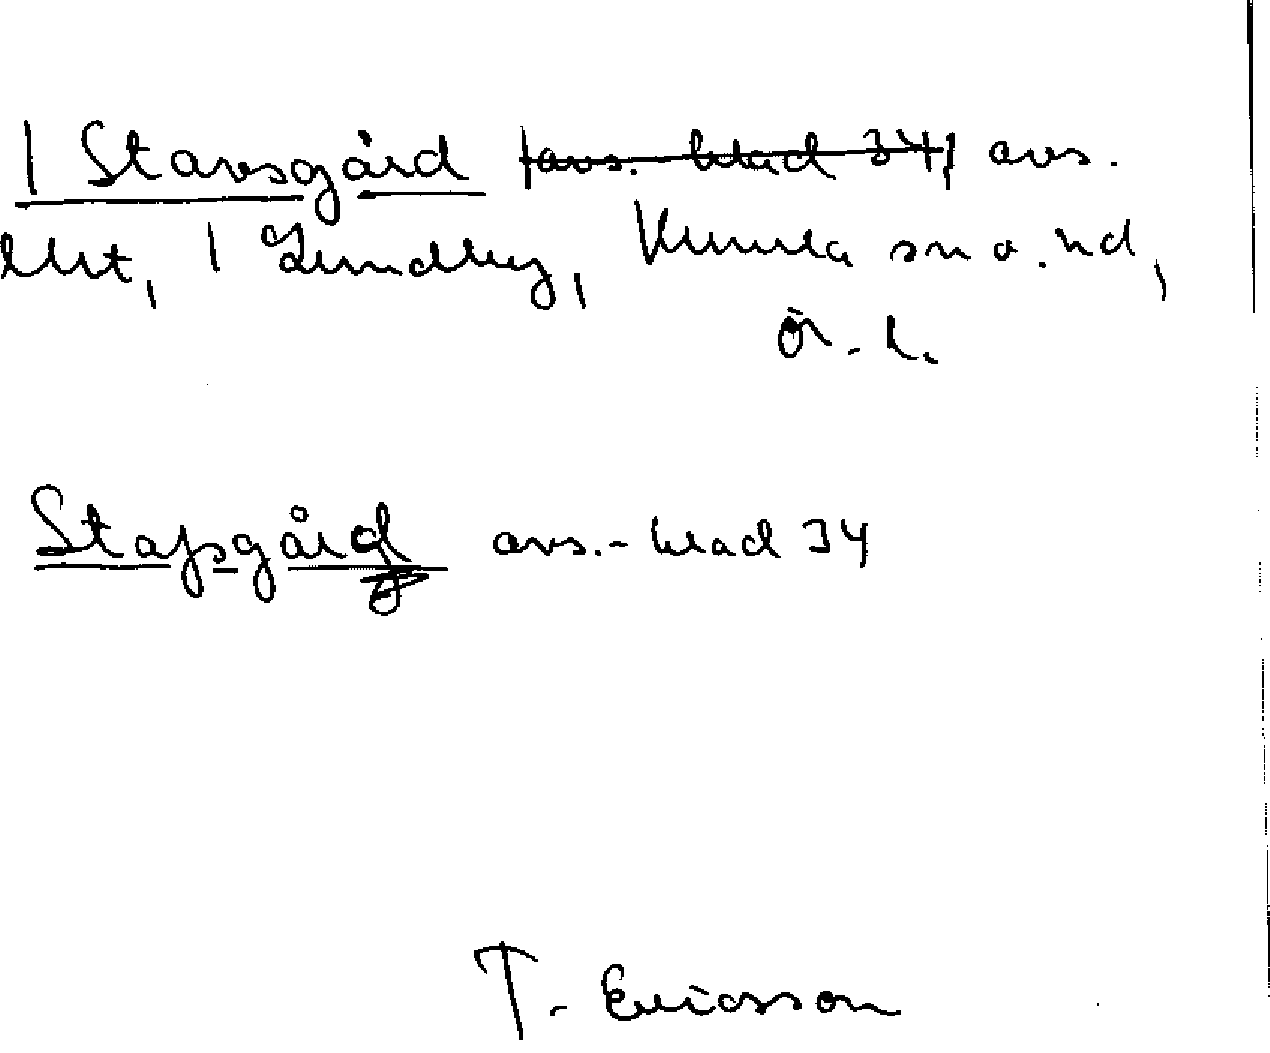 1 Stavsgård (avs. blad 34) avs.
lht, 1 Lundby, Kumla sn o. hd,
Ör. l.
Stafsgård avs.-blad 34
T. Ericsson